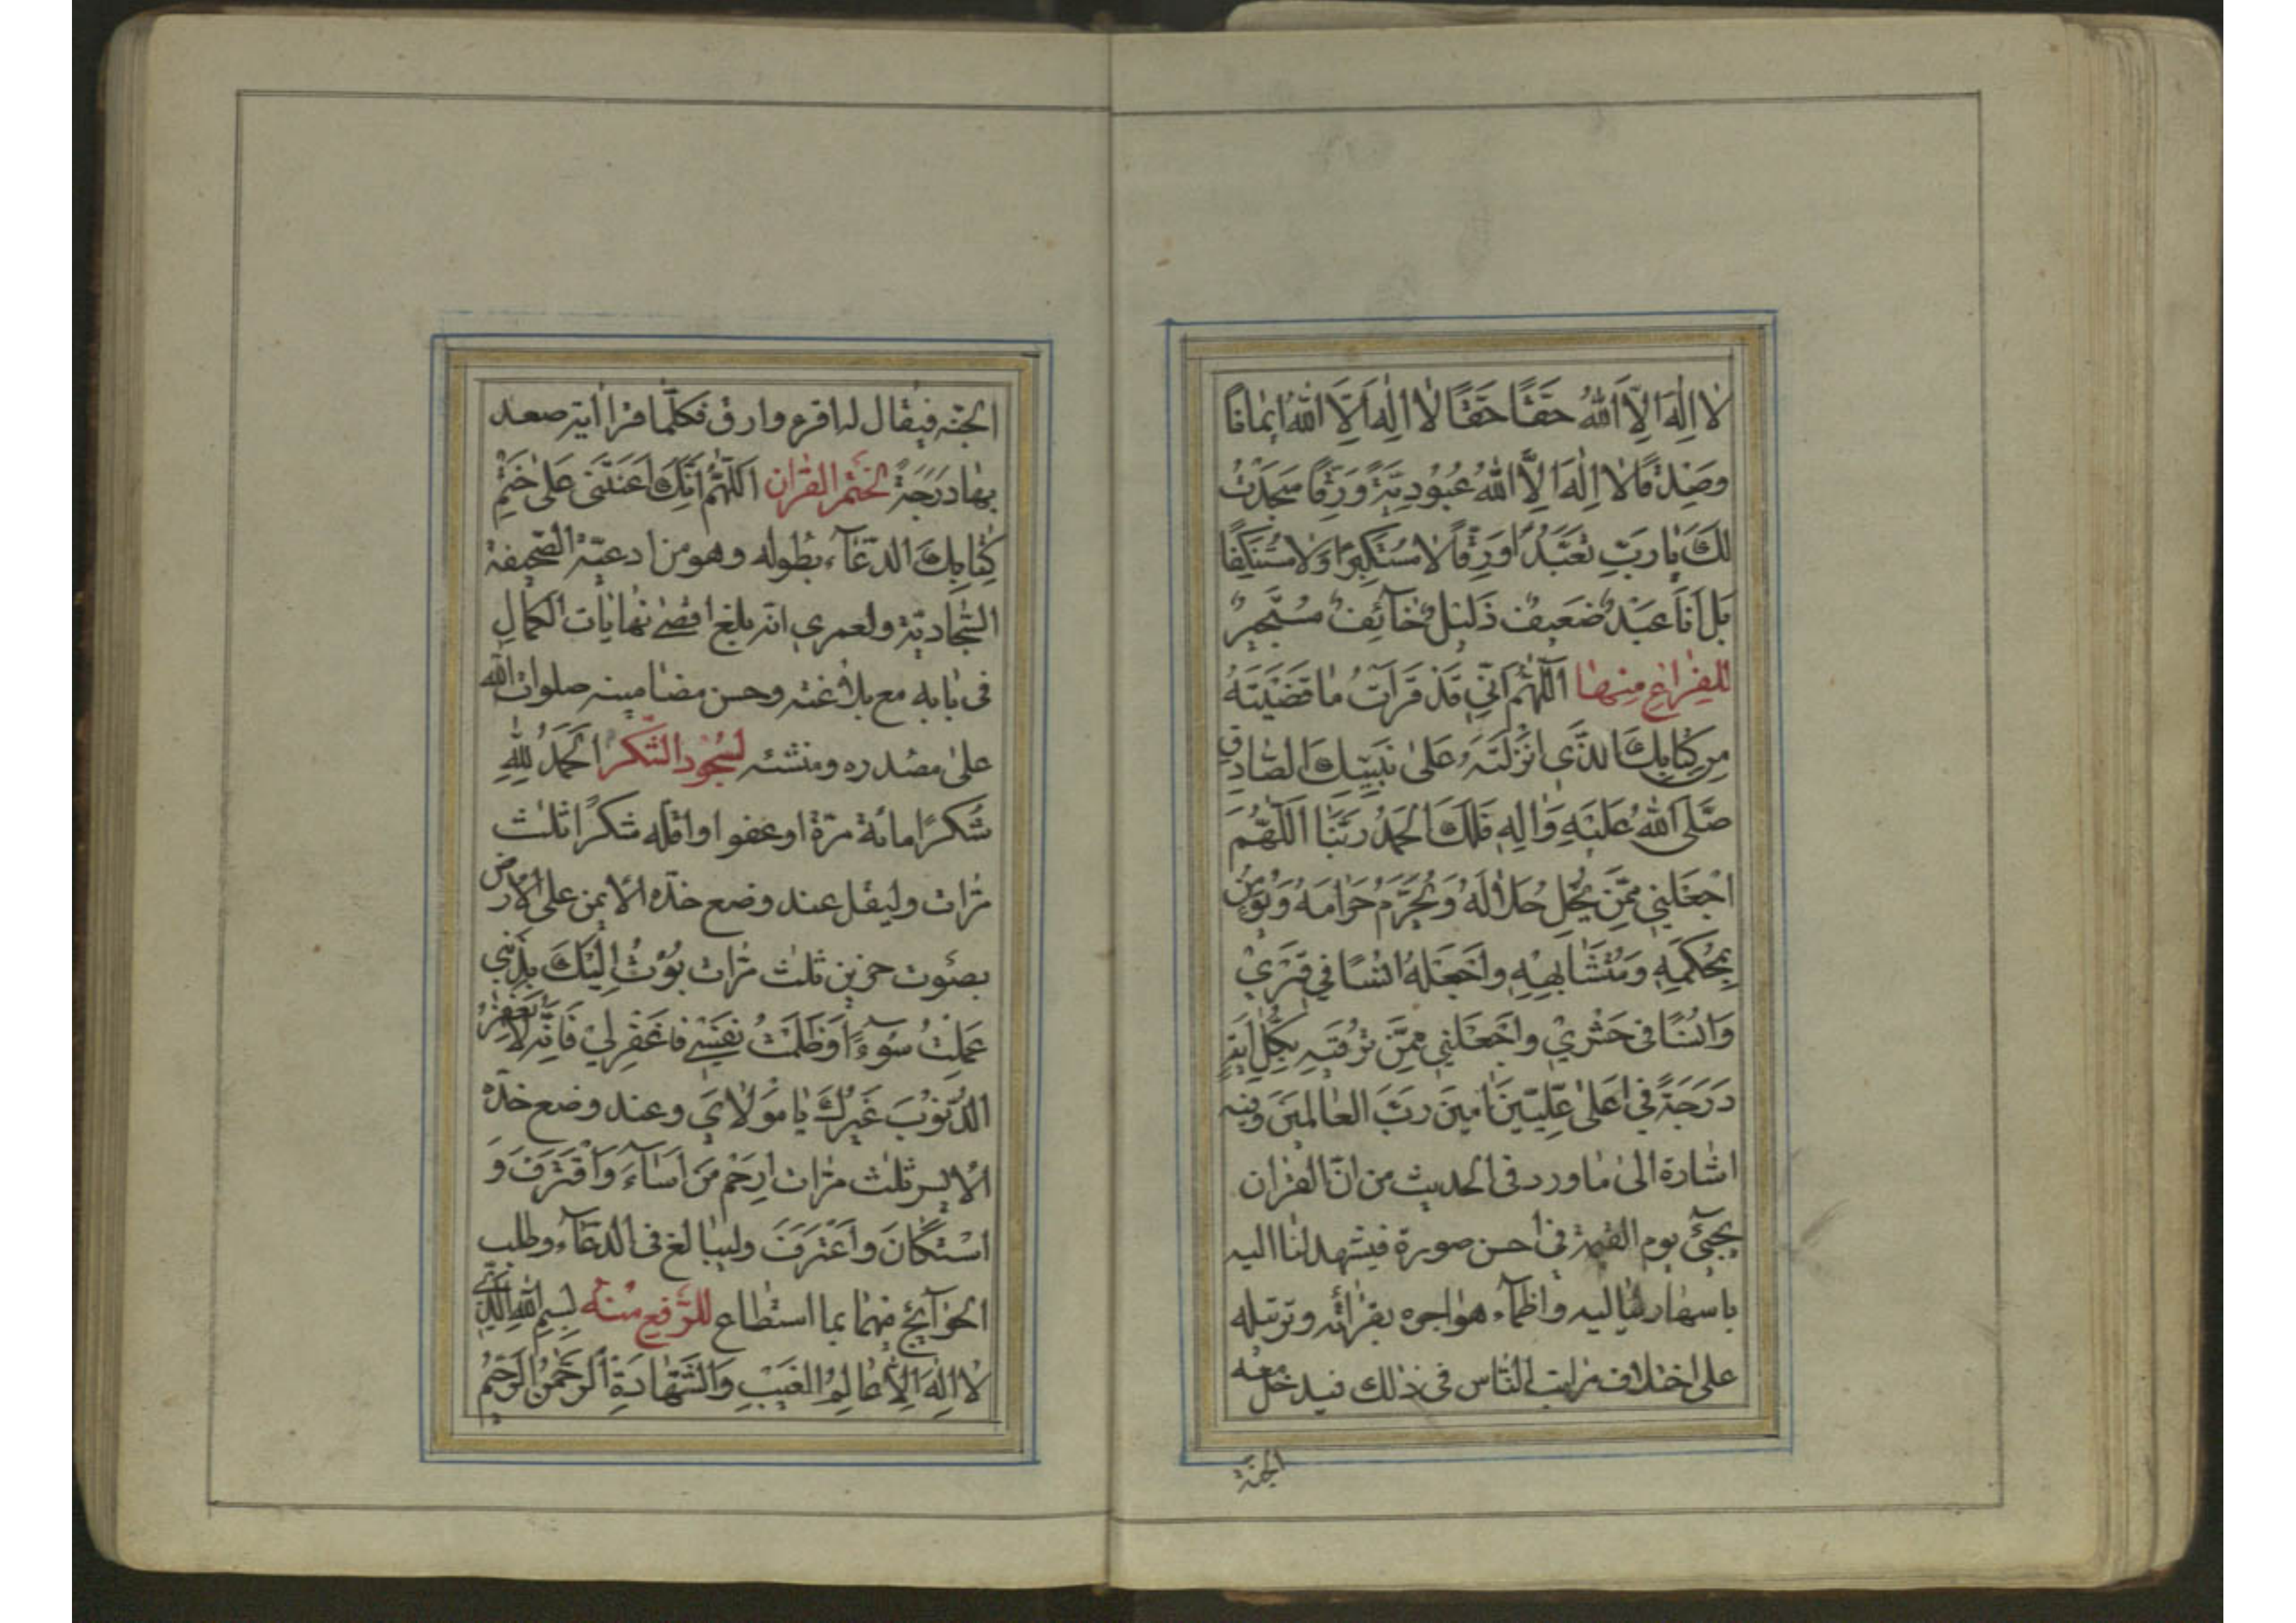 لا اِلٰهَ اِلاَّ اللهُ حَقًّا حَقًّا لا اِلٰهَ اِلاَّ اللهُ ايمٰانًا
وَصَدْقًا لا اِلٰهَ اِلاَّ اللهُ عُبُودِيَّةً وَرِقًّا سَجَدْتُ
لَكَ يٰا رَبِّ تَعَبُّدًا وَرِقًّا لا مُسْتَكْبِرًا وَلا مُسْتَنْكِفًا
بَلْ اَنَا عَبْدٌ ضَعيفٌ ذَليلٌ خٰآئِفٌ مُسْتَجيرٌ
للفراغ منها اَللّٰهُمَّ اِنّي قَدْ قَرَأتُ مٰا قَضَيْتَهُ
مِن كِتٰابِكَ الَّذي اَنْزَلْتَهُ عَلىٰ نَبِيِّكَ الصّٰادِقِ
صَلَّى اللهُ عَلَيْهِ وَاٰلِهِ فَلَكَ الحَمْدُ رَبَّنٰا اَللّٰهُمَّ
اجْعَلْني مِمَّنْ يُحِلُّ حَلالَهُ وَيُحَرِّمُ حَرٰامَهُ وَيُؤمِنُ
بِمُحْكَمِهِ وَمُتَشٰابِهِهِ وَاجْعَلْهُ اُنْسًا في قَبْري
وَاُنْسًا في حَشْري وَاجْعَلْني مِمَّنْ تُرْقيهِ بِكُلِّ ايَةٍ
دَرَجَةً في اَعْلىٰ عِلِّيّينَ اٰمينَ رَبَّ العٰالَمينَ وفيه
اشارة الىٰ مٰا ورد فى الحديث من انّ القران
يجيئ يوم القيمة فى احسن صورة فيشهد لنا اليه
باسهار لياليه واظمآء هواجره بقرائته وترتيله
على اختلاف مراتب الناس فى ذلك فيدخل معه
الجنة
الجنّه فيقال له اقرء وارق فكلّما قرا اية صعد
بها دَرَجَةً لختم القران اَللّٰهُمَّ اِنَّكَ اَعَنْتَني عَلىٰ خَتْمِ
كِتٰابِكَ الدّعٰآء بطوله وهو من ادعيّة الصّحيفة
السّجاديّة ولعمري انّه بلغ اقصىٰ نهايات الكمالِ
فى بابه مع بلاغته وحسن مضامينه صلوات الله
علىٰ مصدره ومنشئه لسجود الشّكر الحَمْدُ لِلّٰهِ
شُكْرًا مائة مرّة او عفوا واقلّه شكرًا ثلث
مرّات وليقل عند وضع خدّه الايمن على الارض
بصوت حزين ثلث مرّات بُؤْتُ اِلَيْكَ بِذَنْبي
عَمِلْتُ سُوءًا وَظَلَمْتُ نَفْسي فَاغْفِرْ لي فَاِنَّهُ لا يَغْفِرُ
الذُّنُوبَ غَيْرُكَ يٰا مَوْلايَ وعند وضع خدّه
الايسر ثلث مرّات اِرْحَمْ مَن اَسٰآءَ وَاقْتَرَفَ وَ
اسْتَكٰانَ وَاعْتَرَفَ وليبالغ فى الدعآء وطلب
الحوآئج مهما بما استطاع للرّفع منه بِسمِ اللهِ الَّذي
لا اِلٰهَ اِلاّ عٰالِمُ الغَيْبِ وَالشَّهٰادَةِ الرَّحْمٰنُ الرَّحيمُ